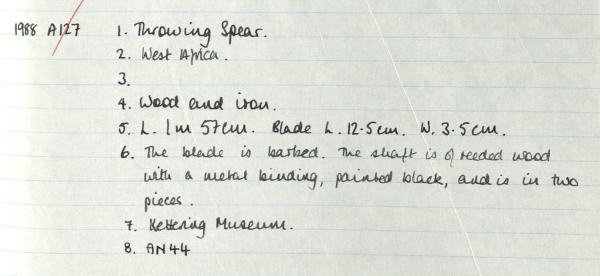 1988 A127 1. Throwing Spear.
2. West Africa.
3.
4. Wood and iron.
5. L. 1m 57cm. Blade L. 12.5cm. W. 3.5cm.
6. The blade is barbed. The shaft is of reeded wood
with a metal binding, painted black, and is in two
pieces.
7. Kettering Museum.
8. AN44